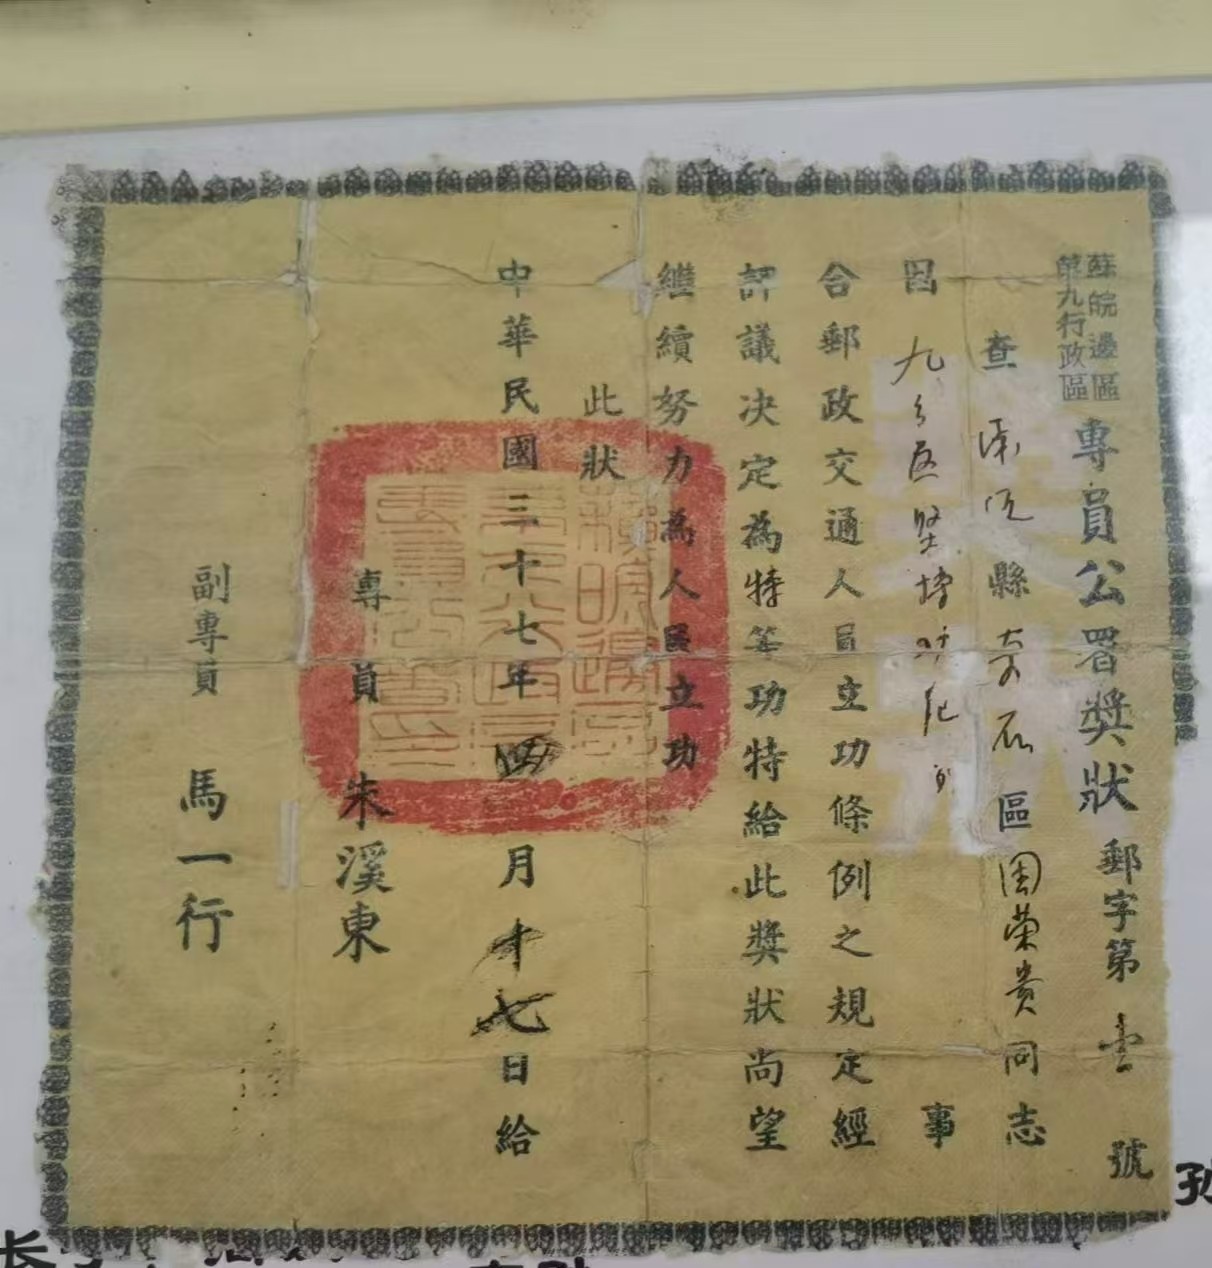 蘇皖邊區
第九行政區
專員公署獎狀郵字第壹號
查縣區周榮貴同志
因九事
合郵政交通人員立功條例之規定經
評議決定為特等功特給此獎狀尚望
繼續努力為人民立功
此狀
中華民國三十七年四月十七日給
專員朱溪東
副專員馬一行